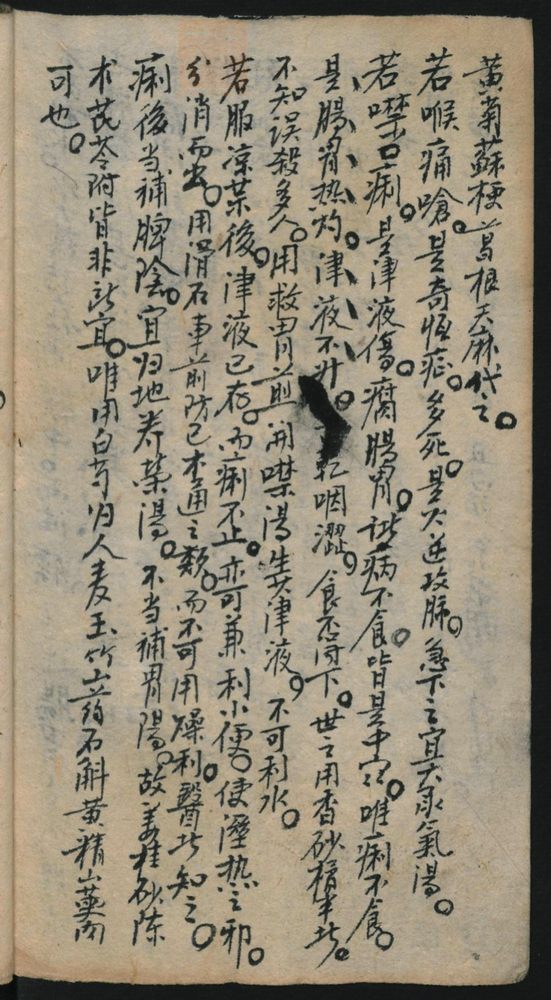 黃菊蘇梗葛根天麻代之。
若喉痛嗆。是奇恆症。多死。是火逆攻肺。急下之宜大承氣湯。
若噤口痢。是津液傷。腐腸胃。諸病不食皆是中宮。唯痢不食。
是腸胃热灼。津液不升。乾咽澀。食不得下。世之用香砂橘半者。
不知誤殺多人。用救胃煎開噤湯生津液。不可利水。
若服凉藥後。津液已存。而痢不止。亦可兼利小便。使溼热之邪。
分消而出。用滑石車前防己木通之類。而不可用燥利。醫者知之。
痢後当補脾陰。宜归地养榮湯。不当補胃陽。故姜桂砂陈
朮芪苓附皆非所宜。唯用白芍归人麦玉竹立药石斛黄精山藥肉
可也。